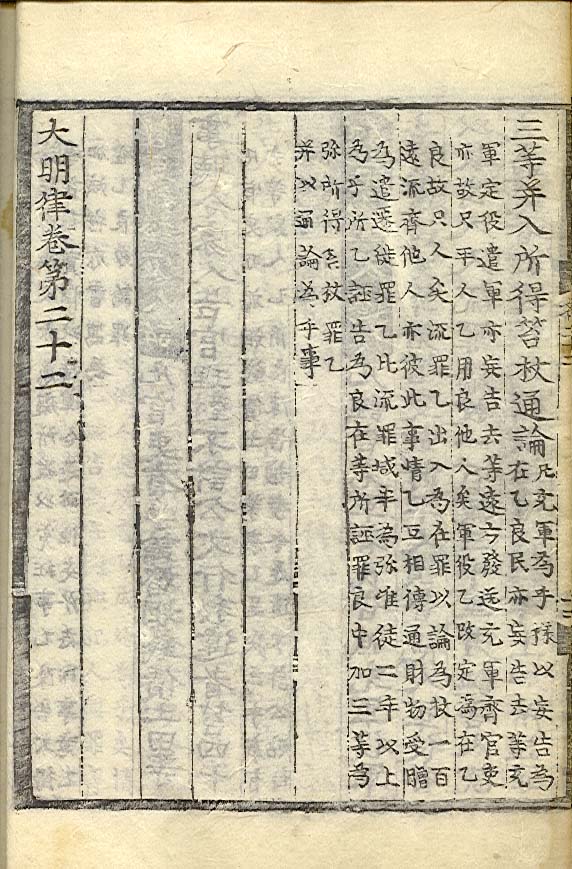 三等并入所得笞杖通論凡充軍為乎樣以妄告為
在乙良民亦妄告去等充
軍定役遣軍亦妄告去等遠方發送充軍齊官吏
亦故只平人乙用良他人矣軍役乙改定為在乙
良故只人矣流罪乙出入為在罪以論為杖一百
遠流齊他人亦彼此事情乙互相傳通財物受贈
為遣遷徙罪乙此流罪域半為弥唯徒二年以上
為乎所乙誣告為良在等所誣罪良中加三等為
弥所得笞杖罪乙
并以通論為乎事
大明律卷第二十二